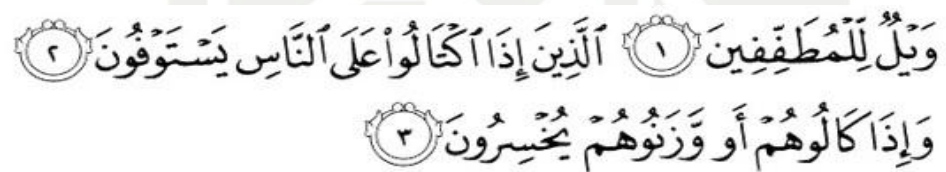 وَيۡلٞ لِّلۡمُطَفِّفِينَ ١ ٱلَّذِينَ إِذَا ٱكۡتَالُواْ عَلَى ٱلنَّاسِ يَسۡتَوۡفُونَ ٢
وَإِذَا كَالُوهُمۡ أَو وَّزَنُوهُمۡ يُخۡسِرُونَ ٣